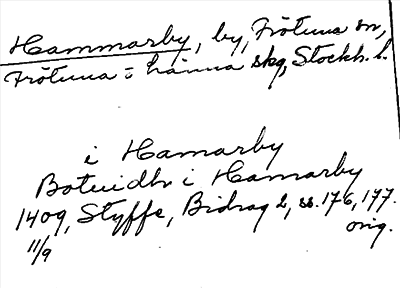 Hammarby, by, Frötuna sn,
Frötuna o länna skg, Stockh. l.
i Hamarby
Botuidh i Hamarby
1409, Styffe, Bidrag 2, ss. 176, 177.
11/9 orig.